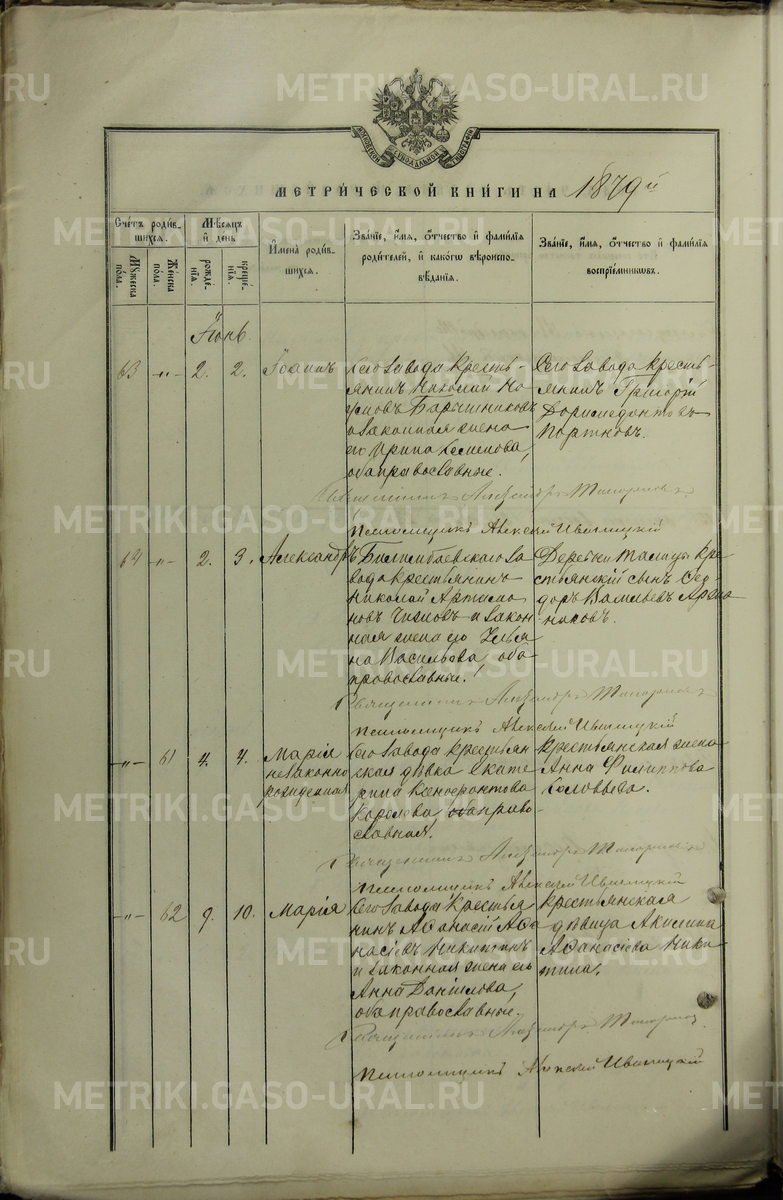 МОСКОВСКОЙ СѴНОДАЛЬНОЙ ТИПОГРАФІИ
МЕТРИЧЕСКОЙ КНИГИ НА 1879й
Счетъ родив-
шихся.
Мужеска
пола.
Женска
пола.
Мѣсяцъ
и день
рожде-
нія.
креще-
нія.
Имена родив-
шихся.
Званіе, имя, отчество и фамилія
родителей, и какого вѣроиспо-
вѣданія.
Званіе, имя, отчество и фамилія
воспріемниковъ.
Іюнь.
63 -„- 2. 2. Іоаннъ
Сего завода кресть-
янинъ Николай На-
умовъ Барышниковъ
и законная жена
его Ирина Семенова,
оба православные.
Сего завода кресть-
янинъ Григорій
Доримедонтовъ
Портновъ.
Священникъ Александръ
Псаломщикъ Алексей Ивановскій
64 -„- 2. 3. Александръ
Билимбаевскаго за
вода крестьянинъ
Николай Артамо
новъ и закон
ная жена его Улья
на Васильева, оба
православные.
Деревни Талицы кре
стьянскій сынъ Сид
доръ Васильевъ
никовъ.
Священникъ Александръ
Псаломщикъ Алексей Ивановскій
-„- 61 4. 4. Марія
незаконно
рожденная
Сего завода крестьян
ская дѣвка Екате
рина Ксенофонтова
Королева, православная.
Крестьянская жена
Анна Филиппова
Соловьева.
Священникъ Александръ
Псаломщикъ Алексей Ивановскій
-„- 62 9. 10. Марія
Сего завода крестья
нинъ Аѳанасій Аѳа
насіевъ Никитинъ
и законная жена его
Анна Данилова,
оба православные.
Крестьянская
дѣвица Акилина
Аѳанасіева Ники
тина.
Священникъ Александръ
Псаломщикъ Алексей Ивановскій
METRIKI.GASO-URAL.RU